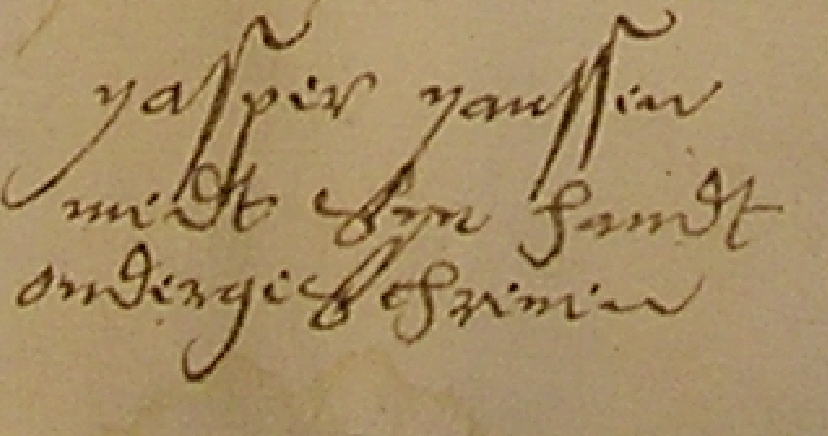 yasper yanssen
medt syn handt
ondergeschrieven